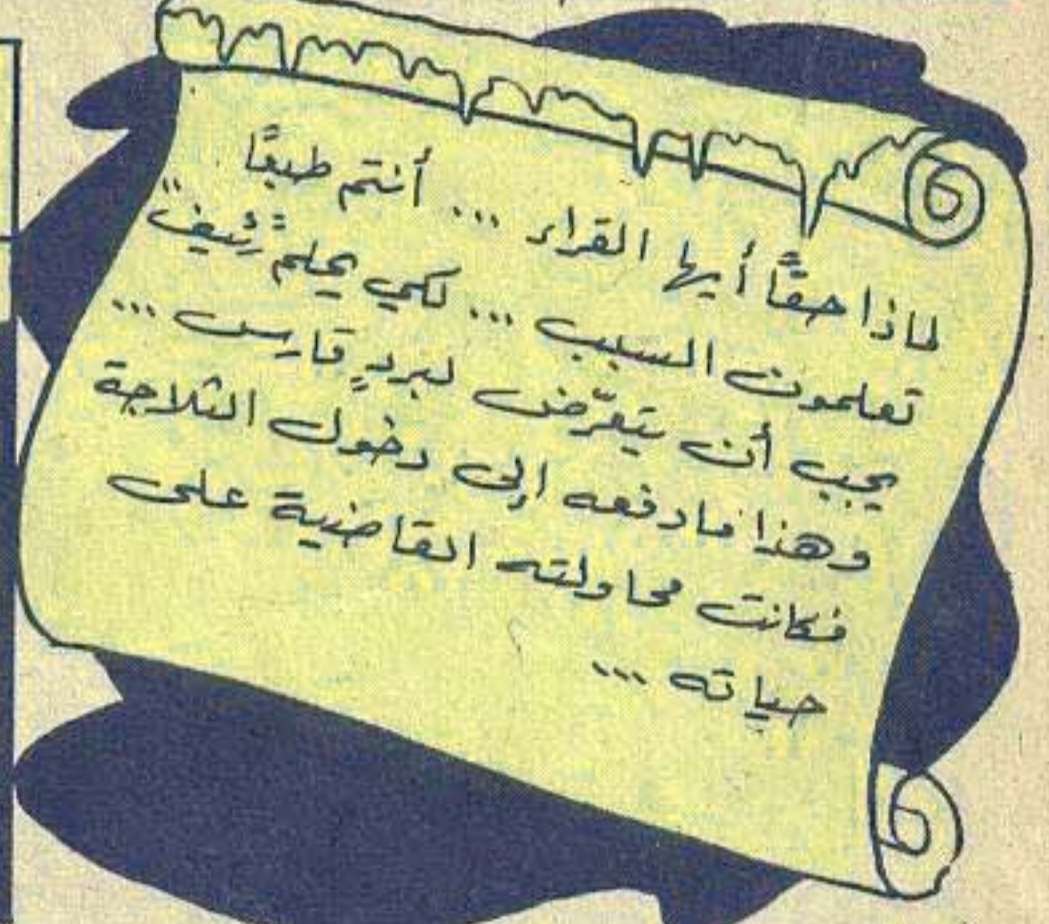 لماذا حقًّا أيها القراء ... أنتم طبعًا
تعلمون السبب ... لكي يحلم "رئيف"
يجب أن يتعرّض لبردٍ قارس ...
وهذا ما دفعه إلى دخول الثلاجة
فكانت محاولته القاضية على
حياته ...